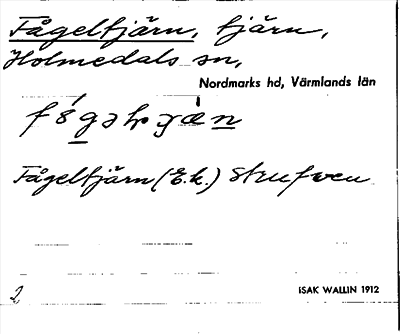 Fågeltjärn, tjärn,
Holmedals sn,
Nordmarks hd, Värmlands län
Fågeltjärn (E.k.) Strufven
2
ISAK WALLIN 1912